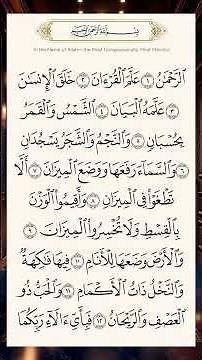 بِسْمِ اللَّهِ الرَّحْمَٰنِ الرَّحِيمِ
In the Name of Allah—the Most Compassionate, Most Merciful
ٱلرَّحْمَٰنُ ١ عَلَّمَ ٱلْقُرْءَانَ ٢ خَلَقَ ٱلْإِنسَٰنَ
٣ عَلَّمَهُ ٱلْبَيَانَ ٤ ٱلشَّمْسُ وَٱلْقَمَرُ
بِحُسْبَانٍ ٥ وَٱلنَّجْمُ وَٱلشَّجَرُ يَسْجُدَانِ
٦ وَٱلسَّمَآءَ رَفَعَهَا وَوَضَعَ ٱلْمِيزَانَ ٧ أَلَّا
تَطْغَوْا۟ فِى ٱلْمِيزَانِ ٨ وَأَقِيمُوا۟ ٱلْوَزْنَ
بِٱلْقِسْطِ وَلَا تُخْسِرُوا۟ ٱلْمِيزَانَ ٩
وَٱلْأَرْضَ وَضَعَهَا لِلْأَنَامِ ١٠ فِيهَا فَٰكِهَةٌ
وَٱلنَّخْلُ ذَاتُ ٱلْأَكْمَامِ ١١ وَٱلْحَبُّ ذُو
ٱلْعَصْفِ وَٱلرَّيْحَانُ ١٢ فَبِأَىِّ ءَالَآءِ رَبِّكُمَا